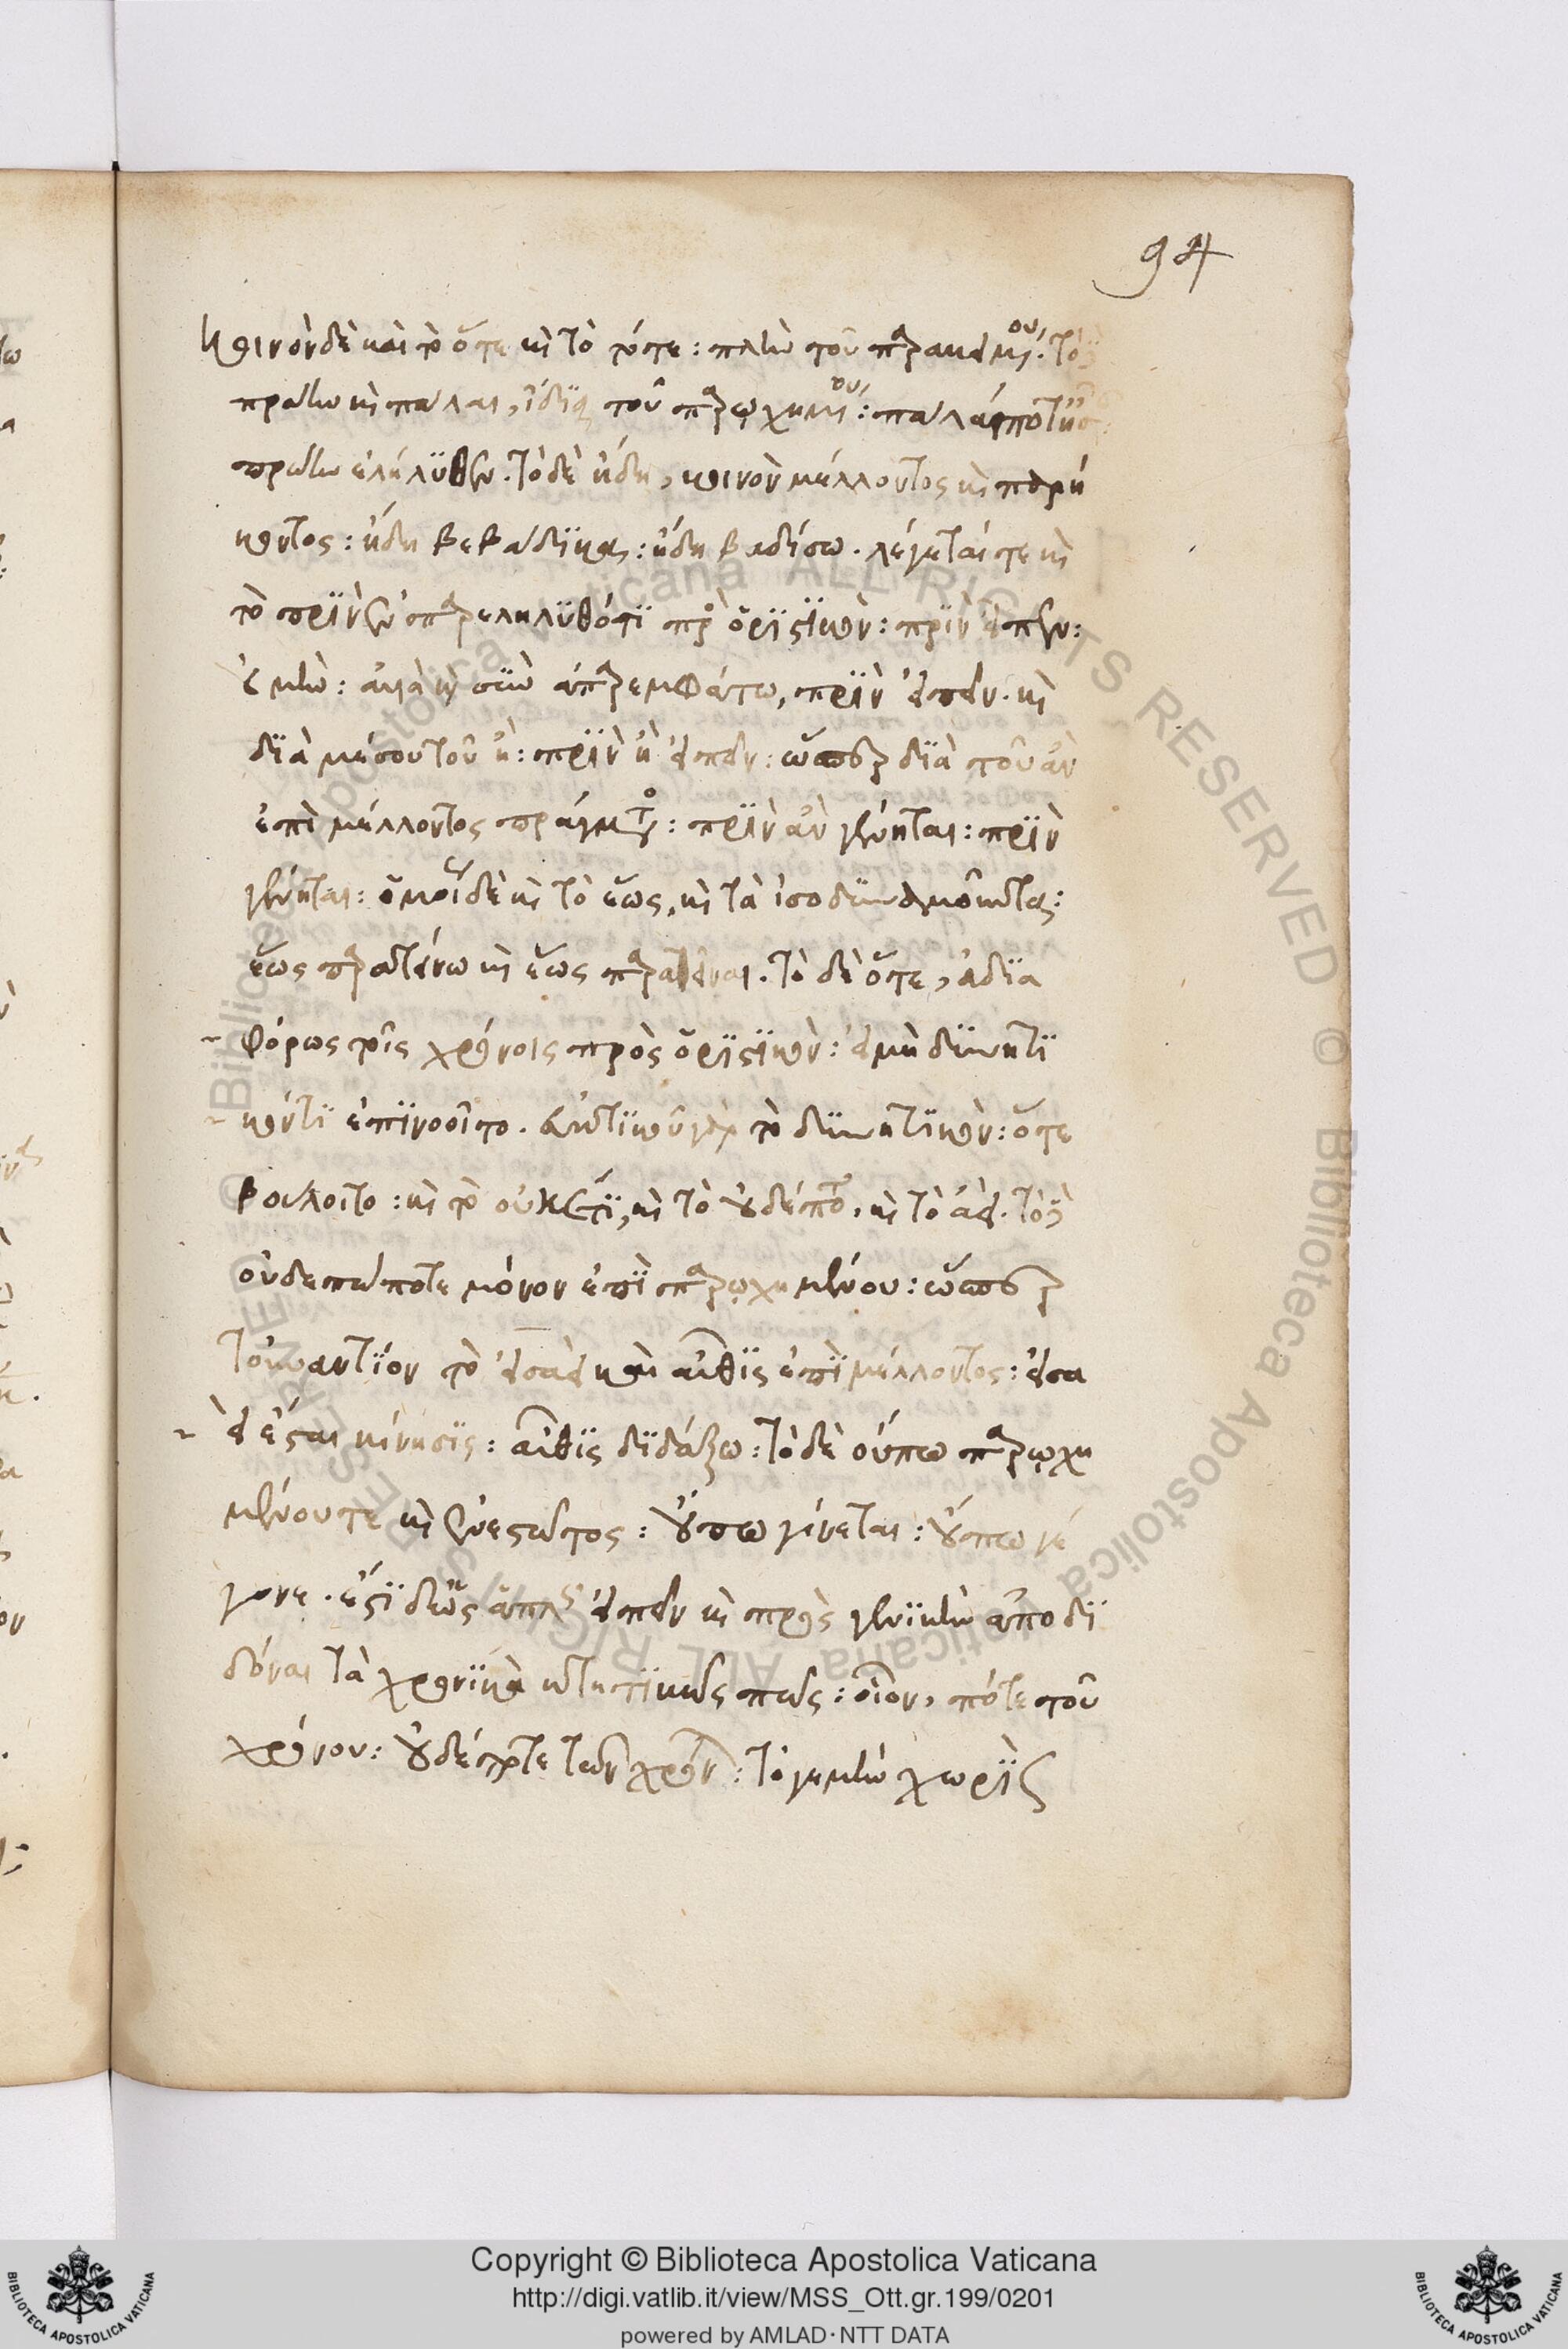 94
κοινὸν δὲ καὶ τὸ ὅτε καὶ τὸ τότε: πλὴν τοῦ παρακειμένου. τὸ δὲ
πρώην καὶ πάλαι, ἴδια τοῦ παρῳχημένου: πάλαι ποτὲ
πρώην ἐλήλυθεν. τὸ δὲ ἤδη, κοινὸν μέλλοντος καὶ παρή
κοντος: ἤδη βεβάδικας: ἤδη βαδίσω. λέγεταί τε καὶ
τὸ πρὶν ἐν παρεληλυθότι πρὸς ὁριστικὸν: πρὶν εἶπεν:
ἀπαρεμφάτω, πρὶν εἰπεῖν. καὶ
διὰ μέσου τοῦ ἢ: πρὶν ἢ εἰπεῖν: ὥσπερ διὰ τοῦ ἂν
ἐπὶ μέλλοντος πράγματος: πρὶν ἂν γένηται: πρὶν
γένηται: ὅμοιον δὲ καὶ τὸ ἕως, καὶ τὰ ἰσοδυναμοῦντα:
ἕως προτείνω καὶ ἕως προτεῖναι. τὸ δὲ ὅτε, ἀδια
φόρως τοῖς χρόνοις πρὸς ὁριστικὸν: εἰ μὴ δυνητι
κόν τι ἐπινοοῖτο. εὐκτικοῦ γὰρ τὸ δυνητικὸν: ὅτε
βούλοιτο: καὶ τὸ οὐκέτι, καὶ τὸ οὐδέποτε, καὶ τὸ ἀεί. τὸ δὲ
οὐδεπώποτε μόνον ἐπὶ παρῳχημένου: ὥσπερ
τοὐναντίον τὸ εἰσαεὶ καὶ αὖθις ἐπὶ μέλλοντος: εἰσα
εὶ ἔσται κίνησις: αὖθις διδάξω: τὸ δὲ οὔπω παρῳχη
μένου τε καὶ ἐνεστῶτος: οὔπω γίνεται: οὔπω γέ
γονε. ἔστι δ' ὡς ἁπλῶς εἰπεῖν καὶ πρὸς γενικὴν ἀποδι
δόναι τὰ χρονικὰ κτητικῶς πως: οἷον, πότε τοῦ
χρόνου: οὐδέποτε τῶν χρόνων: τό γε μὴν χωρὶς
Copyright © Biblioteca Apostolica Vaticana
http://digi.vatlib.it/view/MSS_Ott.gr.199/0201
powered by AMLAD·NTT DATA